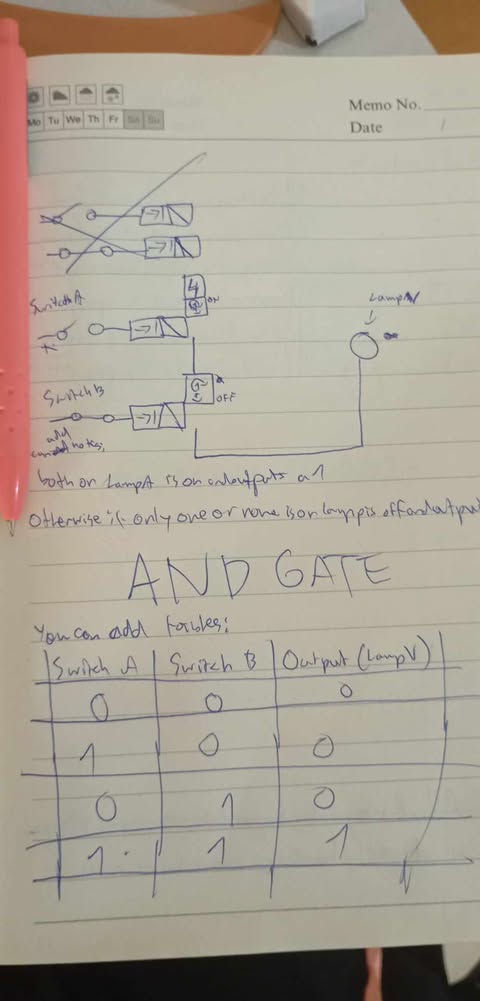 Memo No.
Mo Tu We Th Fr Sa Su
Date /
Switch A
ON
Lamp
Switch B
OFF
add
notes,
both on LampA is on and outputs a 1
Otherwise if only one or none is on lamp is off and output
AND GATE
You can add tables:
Switch A Switch B Output (Lamp V)
0 0 0
1 0 0
0 1 0
1 1 1